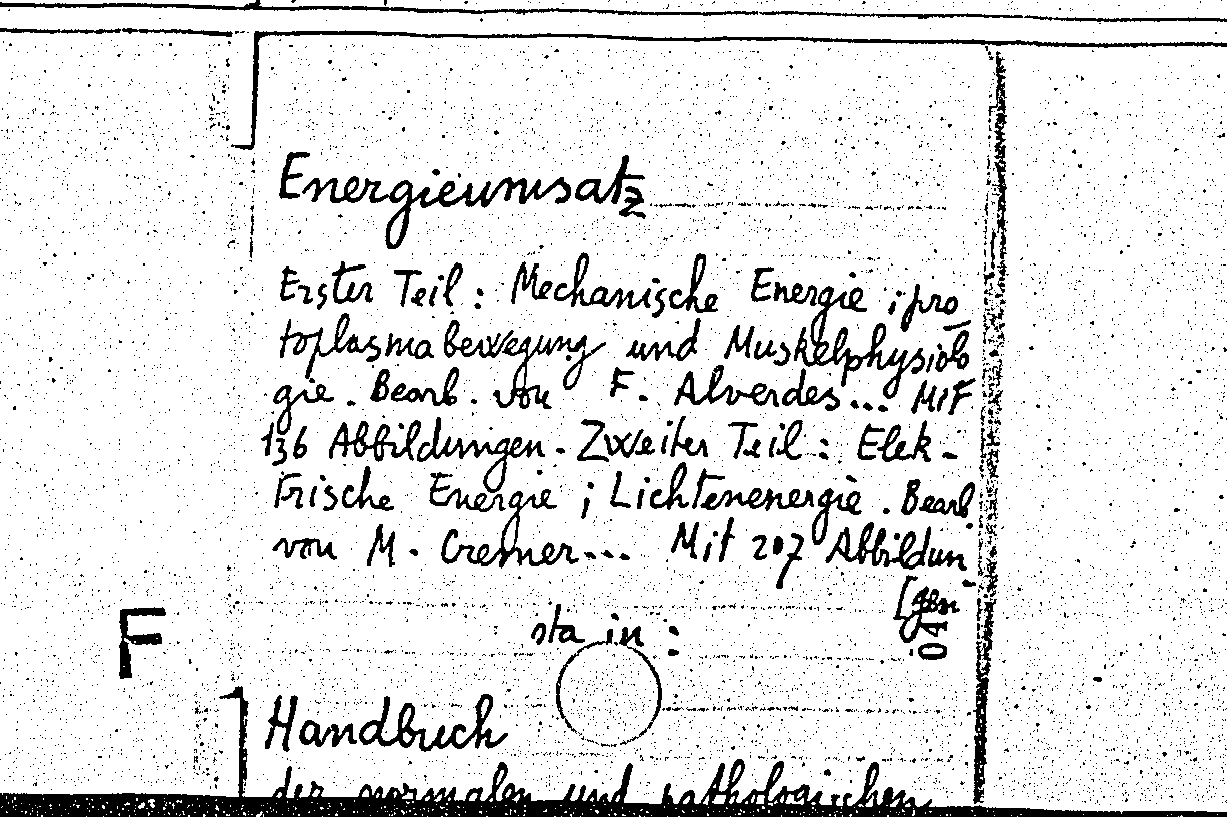 Energieumsatz
Erster Teil : Mechanische Energie ; pro_
toplasmabewegung und Muskelphysiolo
gie . Bearb . von F. Alverdes... Mit
136 Abbildungen . Zweiter Teil : Elek -
trische Energie ; Lichtenenergie . Bearb
von M. Cremer... Mit 207 Abbildun_
[gen
04
sta in :
F
Handbuch
der normalen und pathologischen